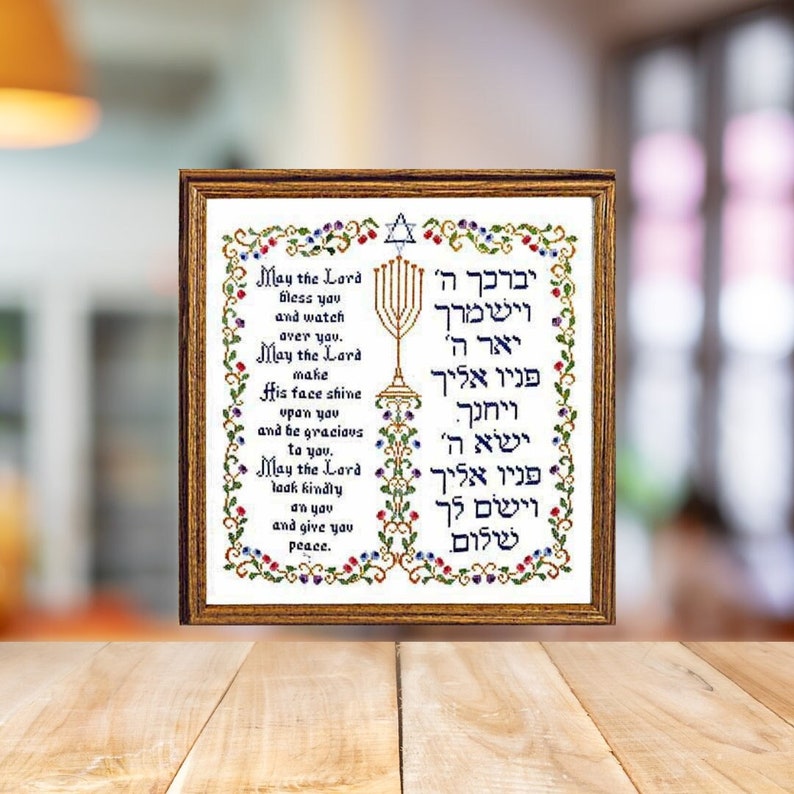 May the Lord
bless you
and watch
over you.
May the Lord
make
His face shine
upon you
and be gracious
to you.
May the Lord
look kindly
on you
and give you
peace.
יברכך ה'
וישמרך
יאר ה'
פניו אליך
ויחנך.
ישא ה'
פניו אליך
וישום לך
שלום.